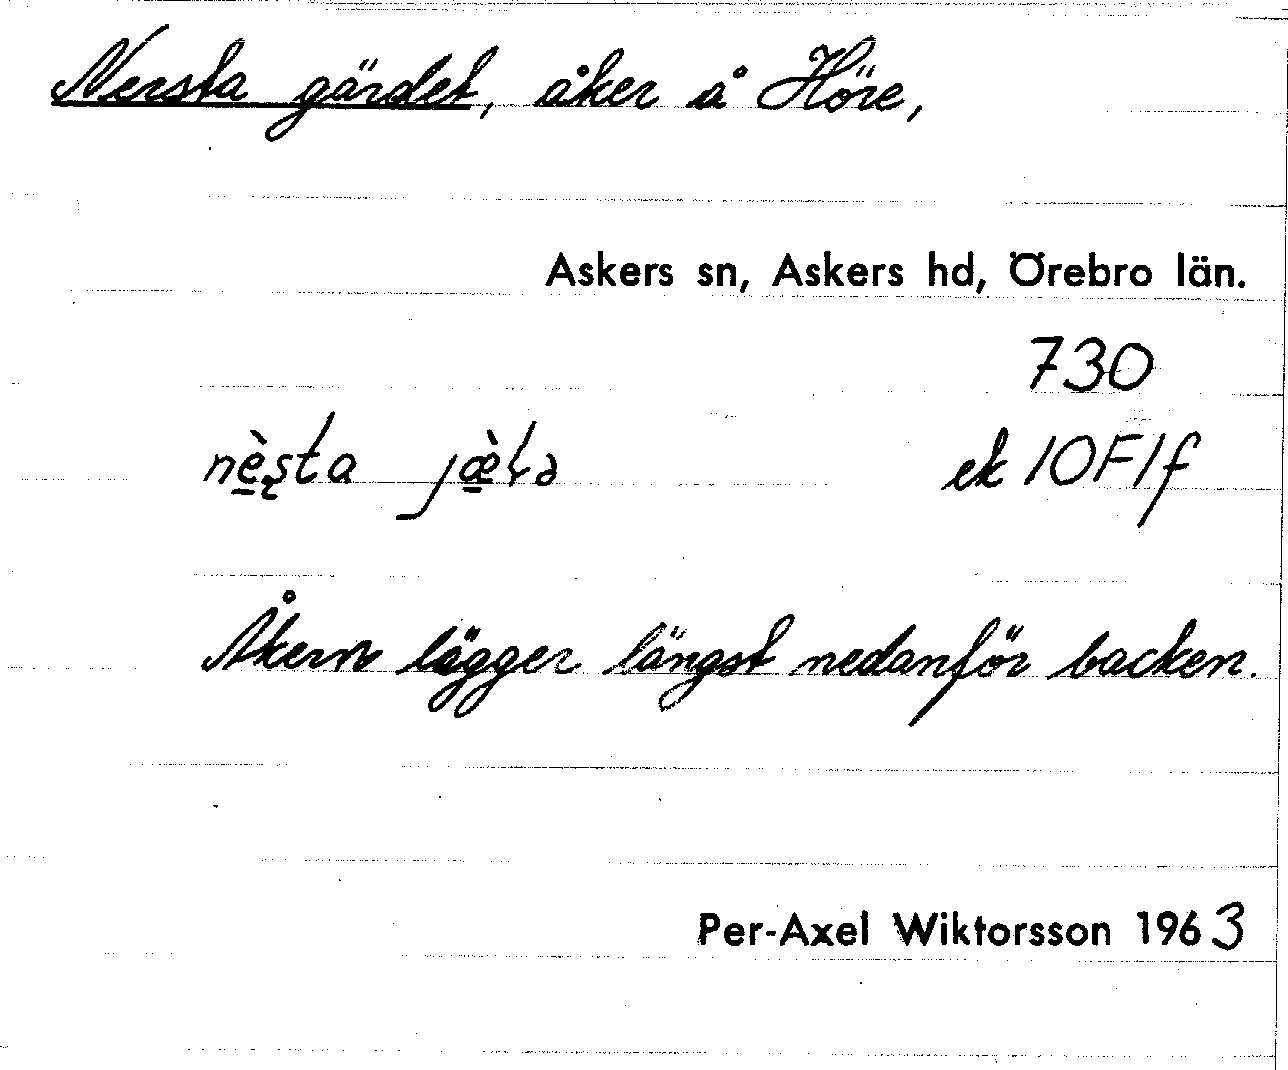 Nersta gärdet, åker å Höre,
Askers sn, Askers hd, Örebro län.
730
nè̱s̨ta jæ̱̀ʈə ek 10F1f
Åkern lägger längst nedanför backen.
Per-Axel Wiktorsson 1963